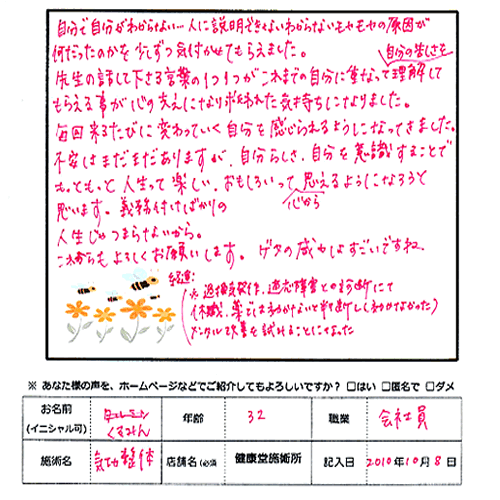 自分で自分がわからない…人に説明できないわからないモヤモヤの原因が
何だったのかを少しずつ気付かせてもらえました。
自分の苦しさを
先生の話して下さる言葉の1つ1つがこれまでの自分に重なって理解して
もらえる事が心の支えになり救われた気持ちになりました。
毎回来るたびに変わっていく自分を感じられるようになってきました。
不安はまだまだありますが、自分らしさ、自分を意識することで
もっともっと人生って楽しい、おもしろいって思えるようになろうと
心から
思います。義務付けばかりの
人生じゃつまらないから。
これからもよろしくお願いします。ゲタの威力はすごいですね
経過:
(※退換気味は、適応障害との診断にて
休職。薬ではきかないと判断し(きかなかった)
メンタル改善を試みることになった
※ あなた様の声を、ホームページなどでご紹介してもよろしいですか? □はい □匿名で □ダメ
お名前 (イニシャル可) くすみん 年齢 32 職業 会社員
施術名 気功整体 店舗名(必須) 健康堂施術所 記入日 2010年10月8日